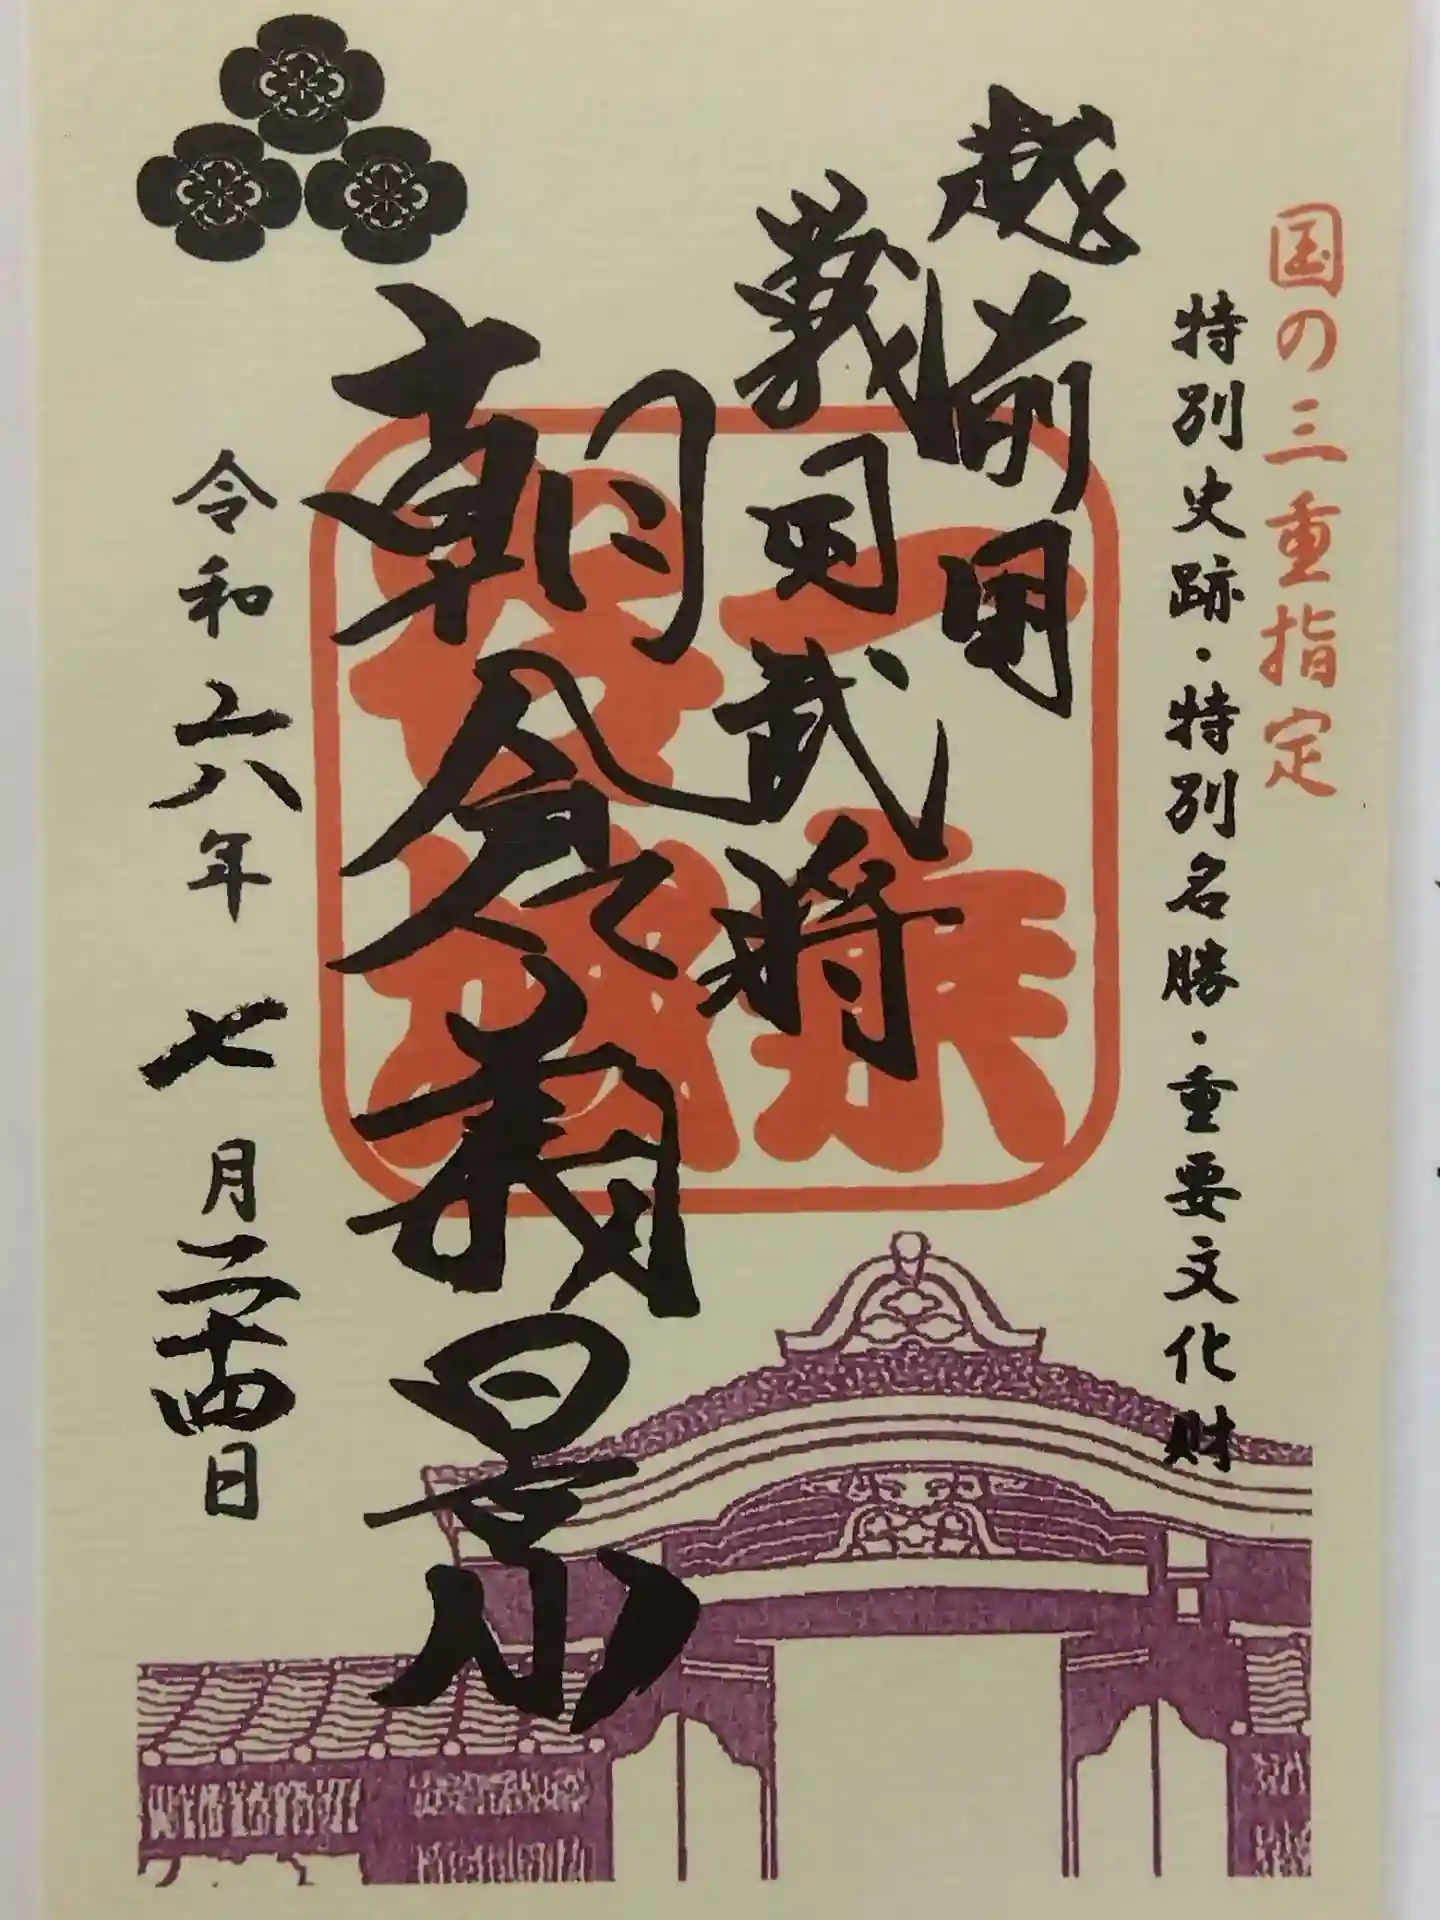 国の三重指定
特別史跡・特別名勝・重要文化財
越前国
戦国武将
朝倉義景
一乗
谷城
令和六年 七月二十四日